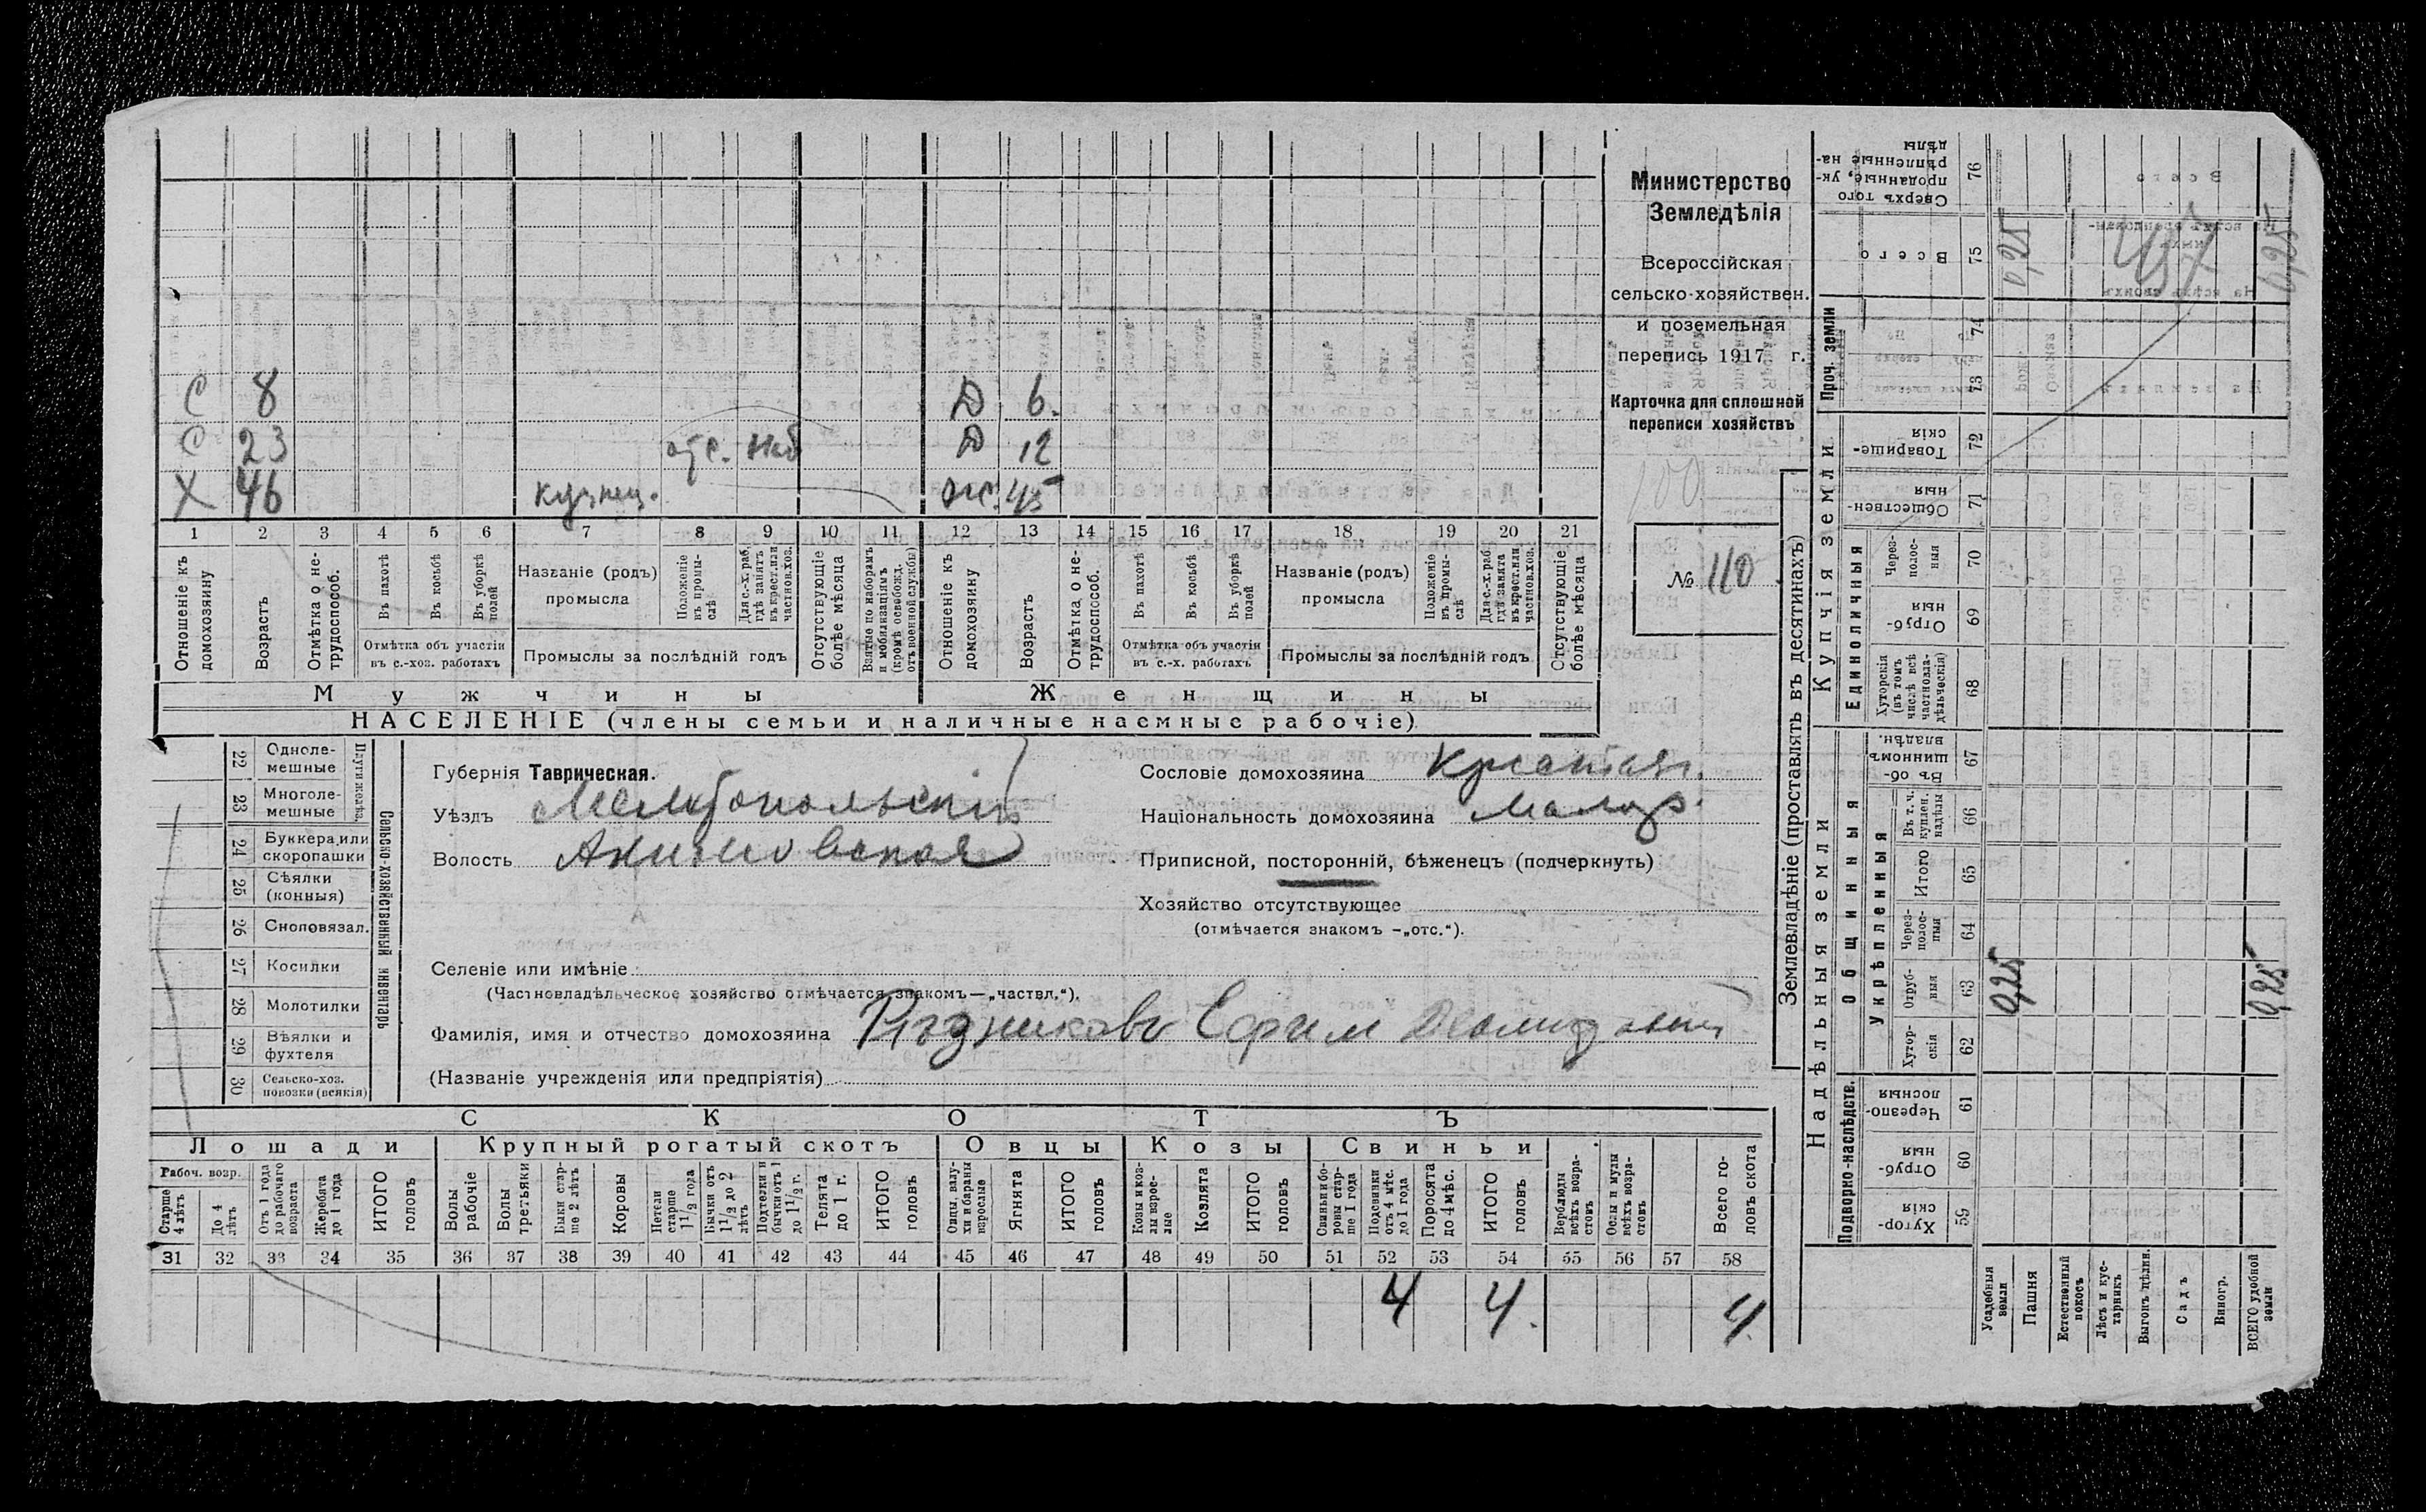 С 8 Д 6.
С 23 отс. наб Д 12
Х 46 кузнец. ж. 45
1 2 3 4 5 6 7 8 9 10 11 12 13 14 15 16 17 18 19 20 21
Отношеніе къ домохозяину
Возрастъ
Отмѣтка о не-
трудоспособ.
Въ пахотѣ
Въ косьбѣ
Въ уборкѣ полей
Отмѣтка объ участіи
въ с.-хоз. работахъ
Названіе (родъ)
промысла
Положеніе
въ промы-
слѣ
Для с.-х. раб.
гдѣ занятъ
въ крест. или
частнов. хоз.
Промыслы за послѣдній годъ
Отсутствующіе
болѣе мѣсяца
Взятые по наборамъ
и мобилизаціямъ
(кромѣ освобожд.
отъ военной службы)
Отношеніе къ
домохозяину
Возрастъ
Отмѣтка о не-
трудоспособ.
Въ пахотѣ
Въ косьбѣ
Въ уборкѣ
полей
Отмѣтка объ участіи
въ с.-х. работахъ
Названіе (родъ)
промысла
Положеніе
въ промы-
слѣ
Для с.-х. раб.
гдѣ занята
въ крест. или
частнов. хоз.
Промыслы за послѣдній годъ
Отсутствующіе
болѣе мѣсяца
Мужчины Женщины
НАСЕЛЕНІЕ (члены семьи и наличные наемные рабочіе)
Министерство
Земледѣлія
Всероссійская
сельско-хозяйствен.
и поземельная
перепись 1917 г.
Карточка для сплошной
переписи хозяйствъ
100
№ 110
22 Одноле-
мешные
23 Многоле-
мешные
Плуги желѣз.
24 Буккера или
скоропашки
25 Сѣялки
(конныя)
26 Сноповязал.
27 Косилки
28 Молотилки
29 Вѣялки и
фухтеля
30 Сельско-хоз.
повозки (всякія)
Сельско-хозяйственный инвентарь
Губернія Таврическая.
Уѣздъ Мелитопольскій
Волость Акимовская
Селеніе или имѣніе
(Частновладѣльческое хозяйство отмѣчается знакомъ—„частвл.“).
Сословіе домохозяина Крестьян.
Національность домохозяина Малор.
Приписной, посторонній, бѣженецъ (подчеркнуть)
Хозяйство отсутствующее
(отмѣчается знакомъ -„отс.“).
Фамилія, имя и отчество домохозяина
(Названіе учрежденія или предпріятія)
СКОТЪ
Лошади Крупный рогатый скотъ Овцы Козы Свиньи
Рабоч. возр.
Старше
4 лѣтъ
До 4
лѣтъ
Отъ 1 года
до рабочаго
возраста
Жеребята
до 1 года
ИТОГО
головъ
Волы
рабочіе
Волы
третьяки
Быки стар-
ше 2 лѣтъ
Коровы
Нетели
старше
1 1/2 года
Бычки отъ
1 1/2 до 2
лѣтъ
Подтелки и
бычки отъ 1
до 1 1/2 г.
Телята
до 1 г.
ИТОГО
головъ
Овцы, валу-
хи и бараны
взрослые
Ягнята
ИТОГО
головъ
Козы и коз-
лы взрос-
лые
Козлята
ИТОГО
головъ
Свиньи и бо-
ровы стар-
ше 1 года
Подсвинки
отъ 4 мѣс.
до 1 года
Поросята
до 4 мѣс.
ИТОГО
головъ
Верблюды
всѣхъ возра-
стовъ
Ослы и мулы
всѣхъ возра-
стовъ
Всего го-
ловъ скота
31 32 33 34 35 36 37 38 39 40 41 42 43 44 45 46 47 48 49 50 51 52 53 54 55 56 57 58
4 4. 4
Землевладѣніе (проставлять въ десятинахъ)
Сверхъ того
проданные, ук-
рѣпленные на-
дѣлы 76
Всего 75 0,25 0,25
Проч. земли 74 73
Купчія земли
Товарище-
скія 72
Обществен-
ныя 71
Единоличныя
Через-
полос-
ныя 70
Отруб-
ныя 69
Хуторскія
(въ томъ
числѣ всѣ
частновла-
дѣльческія) 68
Надѣльныя земли
Общинныя
Въ об-
щинномъ
владѣн. 67
Укрѣпленныя
Въ т. ч.
куплен.
надѣлы 66
Итого 65
Через-
полос-
ныя 64
Отруб-
ныя 63 0,25 0,25
Хутор-
скія 62
Подворно-наслѣдств.
Черезпо-
лосныя 61
Отруб-
ныя 60
Хутор-
скія 59
Усадебныя
земли
Пашня
Естественный
покосъ
Лѣсъ и кус-
тарникъ
Выгонъ цѣлин.
Садъ
Виногр.
ВСЕГО удобной
земли